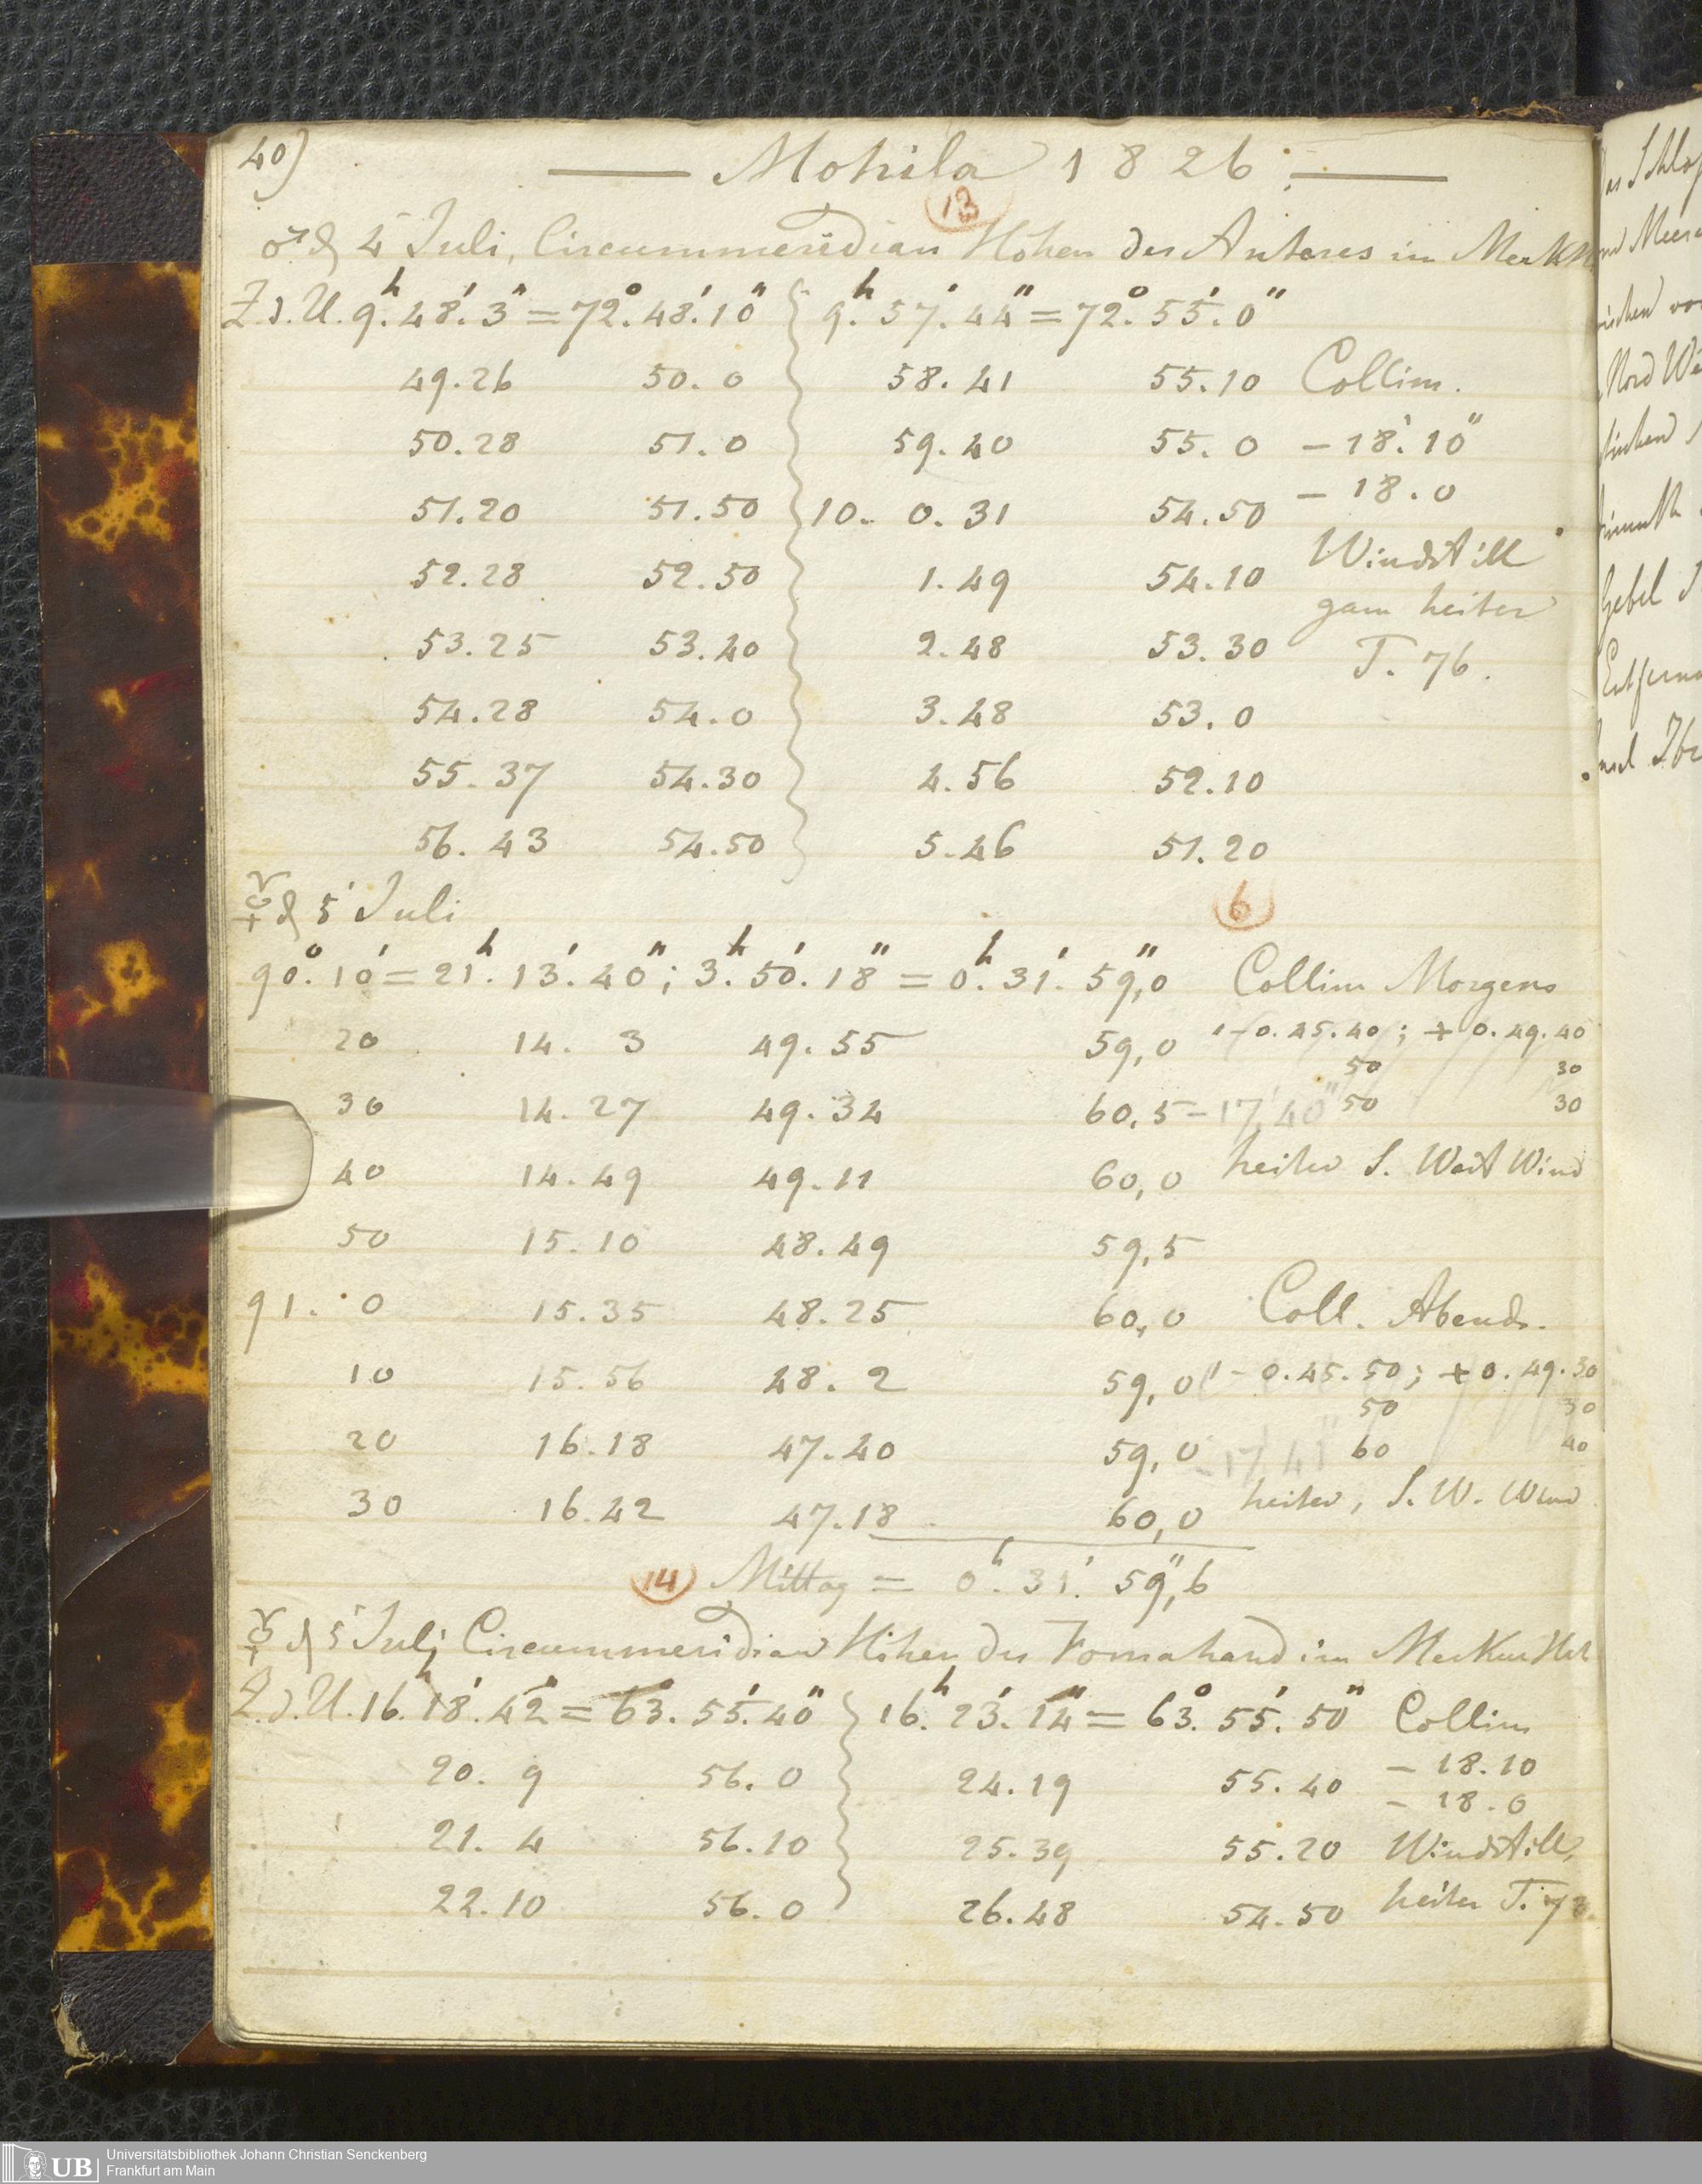 40)
Mohila 1826.
13
♂ d 4 Juli, Circummeridian Höhen des Antares im Merk
Z.d.U. 9.h 48.' 3" = 72.° 48.' 10" } 9.h 57.' 44" = 72.° 55.' 0"
49.26 50. 0 58. 41 55.10 Collim.
50.28 51. 0 59. 40 55. 0 - 18.' 10"
51.20 51.50 10. 0. 31 54.50 - 18. 0
52.28 52.50 1. 49 54.10 Windstill
ganz heiter
53.25 53.40 2. 48 53.30 T. 76.
54.28 54. 0 3. 48 53. 0
55. 37 54.30 4. 56 52.10
56. 43 54.50 5. 46 51. 20
☿ d 5 Juli
6
90.° 10' = 21.h 13.' 40"; 3.h 50.' 18" = 0.h 31.' 59",0 Collim Morgens
20 14. 3 49. 55 59,0 - 0. 45. 40; + 0. 49. 40
50 30
30 14. 27 49. 34 60,5 - 17.' 40" 50 30
40 14. 49 49. 11 60,0 heiter S. West Wind
50 15. 10 48. 49 59,5
91. 0 15. 35 48. 25 60,0 Coll. Abends.
10 15. 56 48. 2 59,0 - 0. 45. 50; + 0. 49. 30
50 30
20 16. 18 47. 40 59,0 60 40
30 16. 42 47. 18 60,0 heiter, S. W. Wind
14 Mittag = 0.h 31.' 59",6
☿ d 5 Juli Circummeridian Höhen des Fomahand im Merkur
Z.d.U. 16.h 18.' 42" = 63.° 55.' 40" } 16.h 23.' 14" = 63.° 55.' 50" Collim
20. 9 56. 0 24. 19 55. 40 - 18. 10
- 18. 0
21. 4 56. 10 25. 39 55. 20 Windstill,
22. 10 56. 0 26. 48 54. 50 heiter T.
UB
Universitätsbibliothek Johann Christian Senckenberg
Frankfurt am Main